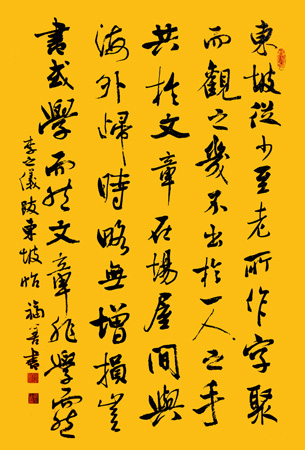 東坡從少至老所作字聚
而觀之幾不出於一人之手
其於文章在場屋間與
海外歸時略無增損豈
書或學而然文章非學而能
李之儀跋東坡帖 福善書